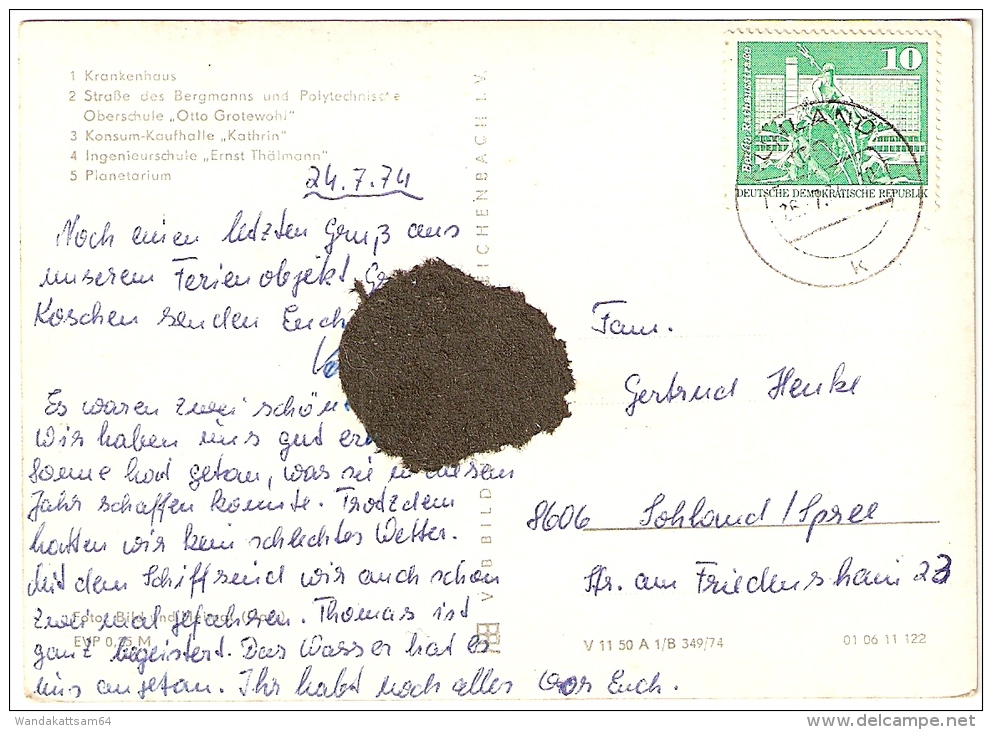 1 Krankenhaus
2 Straße des Bergmanns und Polytechnische
Oberschule „Otto Grotewohl"
3 Konsum-Kaufhalle „Kathrin"
4 Ingenieurschule „Ernst Thälmann"
5 Planetarium
24.7.74
Noch einen letzten Gruß aus
unserem Ferienobjekt
Koschen senden Euch
Es waren zwei schön
Wir haben uns gut
Sonne hat getan, was sie in diesem
Jahr schaffen konnte. Trotzdem
hatten wir kein schlechtes Wetter.
Mit dem Schiff sind wir auch schon
zwei mal gefahren. Thomas ist
ganz begeistert. Das Wasser hat es
uns angetan. Ihr habt noch alles vor Euch.
EVP 0,25 M
VEB BILD
EICHENBACH I. V.
10
DEUTSCHE DEMOKRATISCHE REPUBLIK
K
Fam.
Gertrud Henke
8606 Sohland/Spree
Str. am Friedenshain 23
V 11 50 A 1/B 349/74
01 06 11 122
Wandakattsam64
delcampe.net